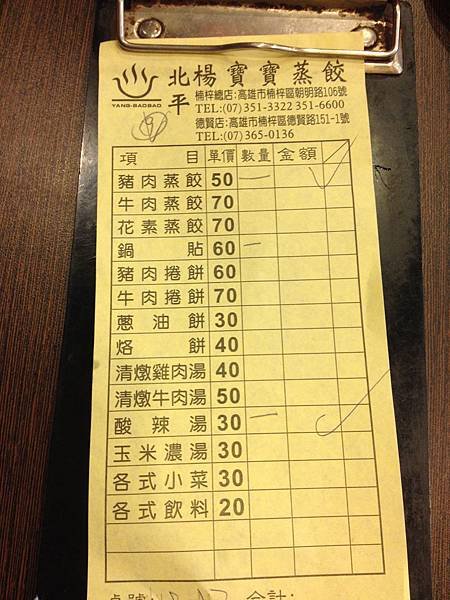 北平 楊寶寶蒸餃
YANG-BAOBAO
楠梓總店:高雄市楠梓區朝明路106號
TEL:(07)351-3322 351-6600
德賢店:高雄市楠梓區德賢路151-1號
TEL:(07)365-0136
項目 單價 數量 金額
豬肉蒸餃 50 一
牛肉蒸餃 70
花素蒸餃 70
鍋貼 60 一
豬肉捲餅 60
牛肉捲餅 70
蔥油餅 30
烙餅 40
清燉雞肉湯 40
清燉牛肉湯 50
酸辣湯 30 一
玉米濃湯 30
各式小菜 30
各式飲料 20
桌號: 合計: